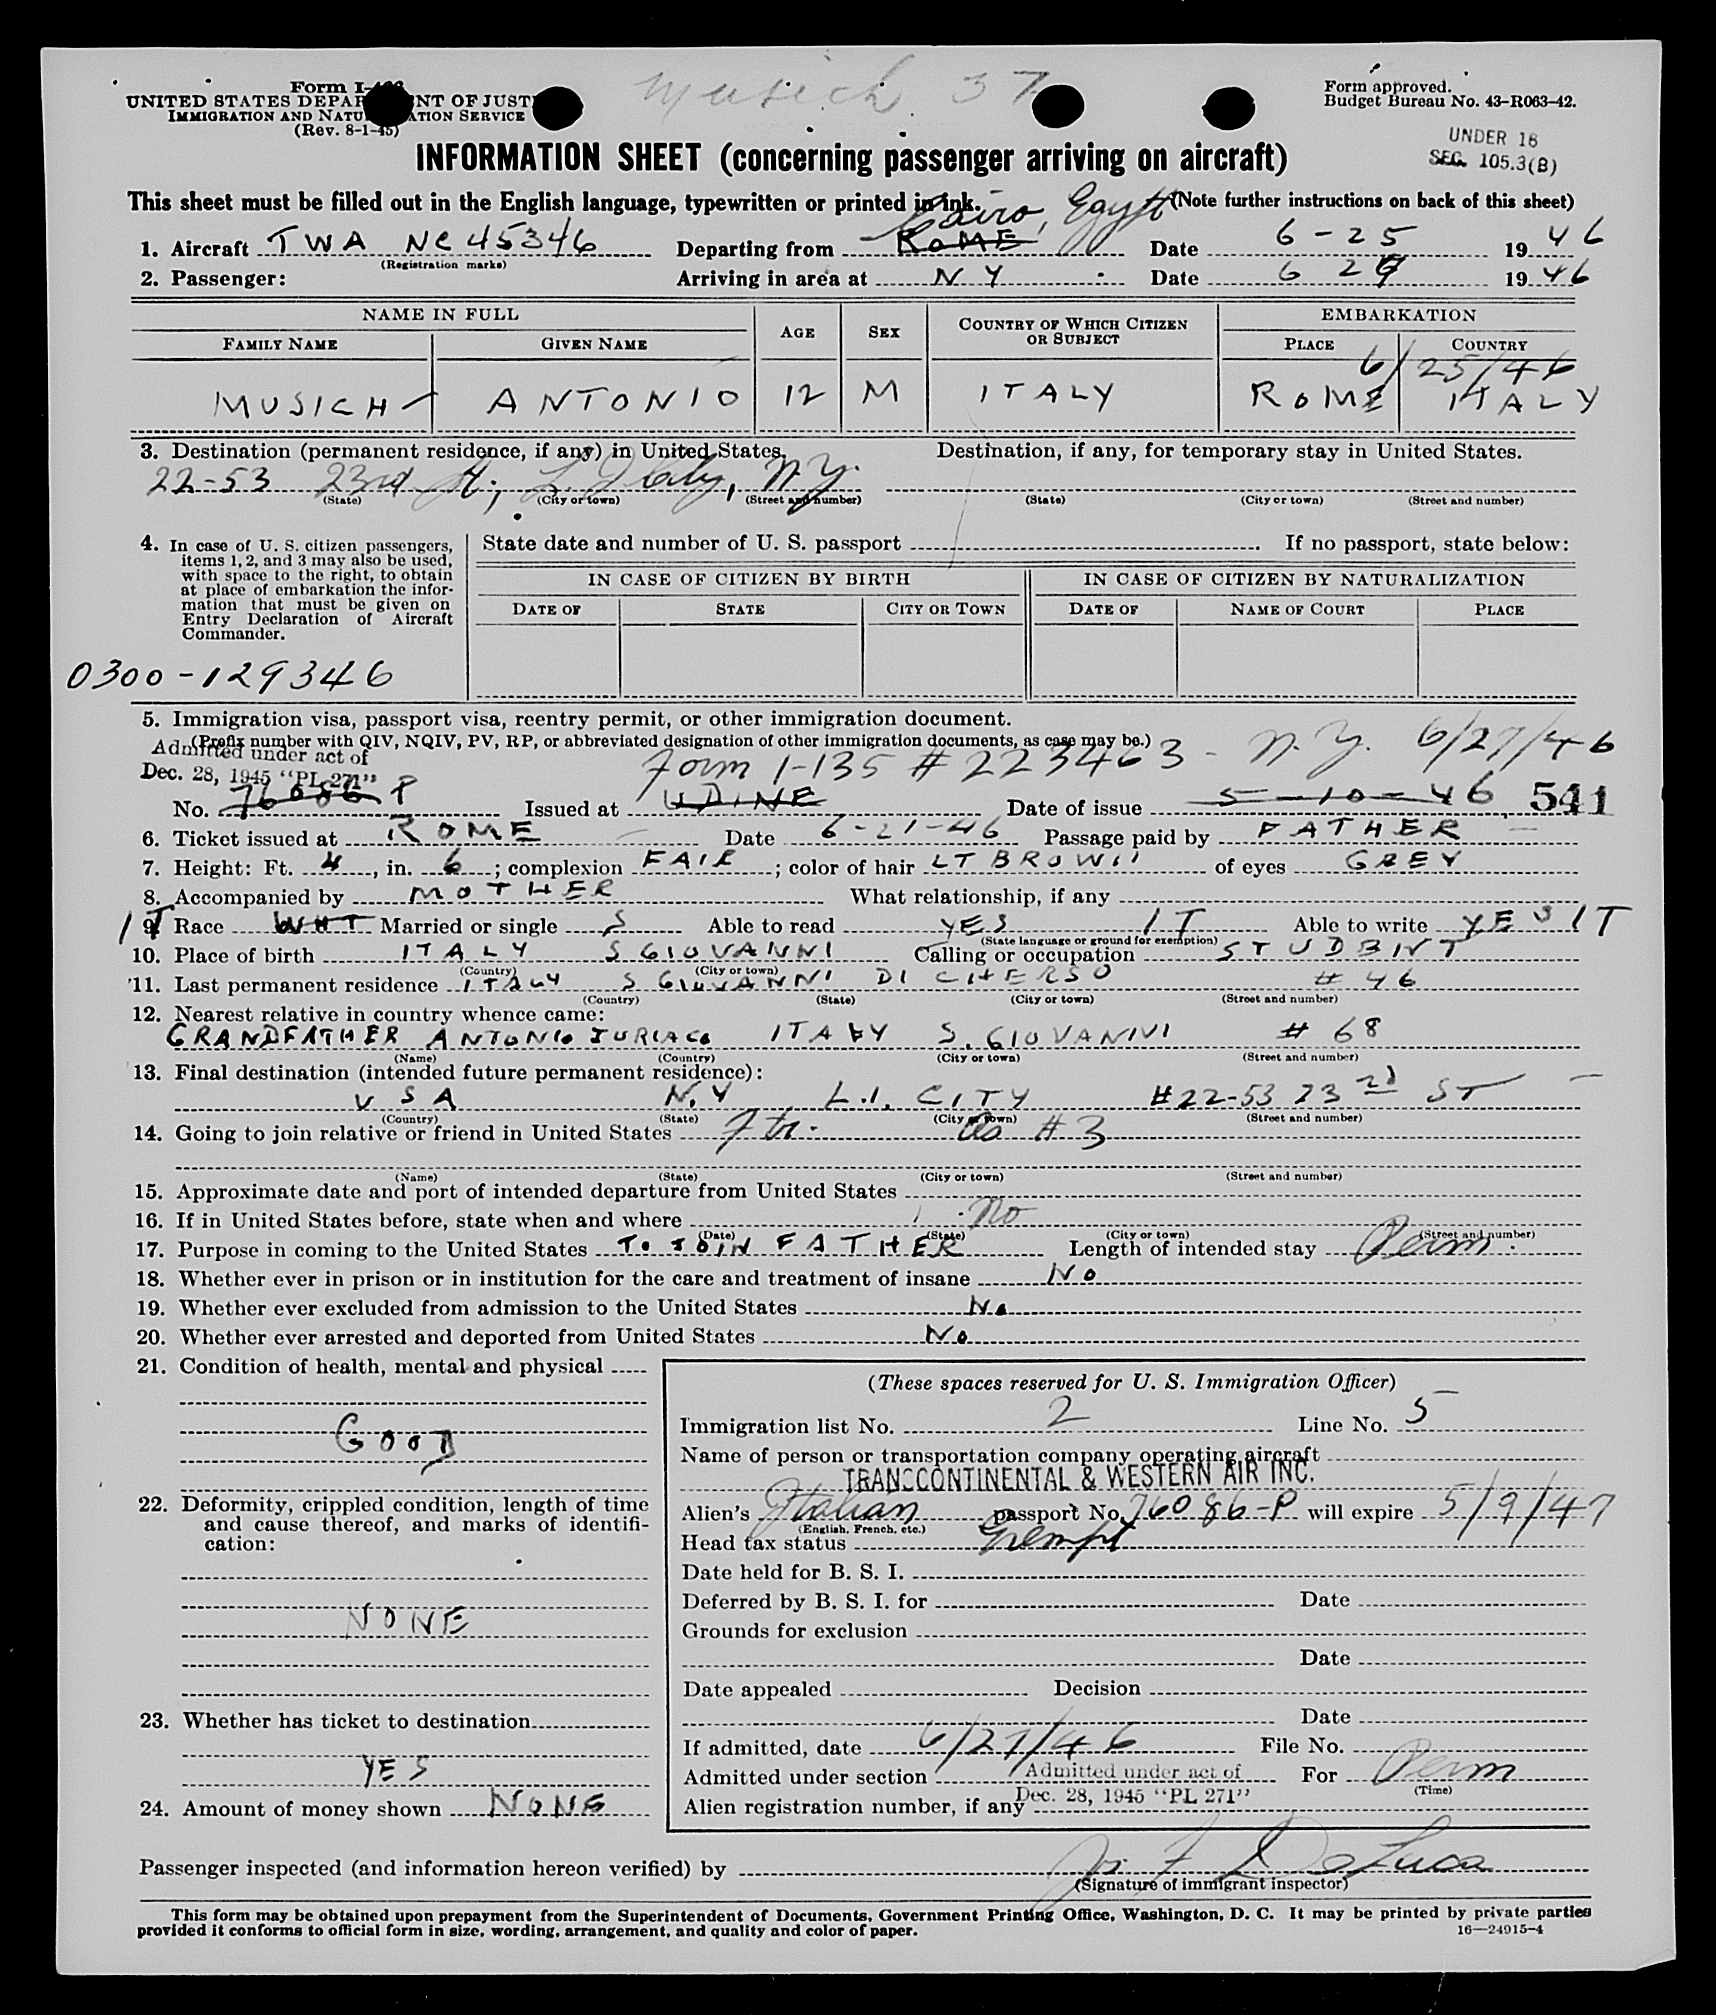 Musich 37
Form I-
UNITED STATES DEPAR NT OF JUST
IMMIGRATION AND NATU ATION SERVICE
(Rev. 8-1-45)
Form approved.
Budget Bureau No. 43-R063-42.
UNDER 16
SEC. 105.3(B)
INFORMATION SHEET (concerning passenger arriving on aircraft)
This sheet must be filled out in the English language, typewritten or printed in ink. (Note further instructions on back of this sheet)
Cairo, Egypt
1. Aircraft TWA NC 45346 Departing from ROME Date 6-25 1946
(Registration marks)
2. Passenger: Arriving in area at NY Date 6 27 1946
NAME IN FULL AGE SEX COUNTRY OF WHICH CITIZEN OR SUBJECT EMBARKATION
FAMILY NAME GIVEN NAME PLACE COUNTRY
6/25/46
MUSICH ANTONIO 12 M ITALY ROME ITALY
3. Destination (permanent residence, if any) in United States. Destination, if any, for temporary stay in United States.
22-53 23rd St; L. I. City, N.Y.
(State) (City or town) (Street and number) (State) (City or town) (Street and number)
4. In case of U. S. citizen passengers, items 1, 2, and 3 may also be used, with space to the right, to obtain at place of embarkation the information that must be given on Entry Declaration of Aircraft Commander.
State date and number of U. S. passport . If no passport, state below:
IN CASE OF CITIZEN BY BIRTH IN CASE OF CITIZEN BY NATURALIZATION
DATE OF STATE CITY OR TOWN DATE OF NAME OF COURT PLACE
0300-129346
5. Immigration visa, passport visa, reentry permit, or other immigration document.
(Prefix number with QIV, NQIV, PV, RP, or abbreviated designation of other immigration documents, as case may be.)
Admitted under act of
Dec. 28, 1945 "PL 271"
Form I-135 # 223463 - N.Y. 6/27/46
No. 76086 P Issued at UDINE Date of issue 5-10-46 541
6. Ticket issued at ROME Date 6-21-46 Passage paid by FATHER
7. Height: Ft. 4, in. 6; complexion FAIR; color of hair LT BROWN of eyes GREY
8. Accompanied by MOTHER What relationship, if any
9. Race WHT IT Married or single S Able to read YES IT Able to write YES IT
(State language or ground for exemption)
10. Place of birth ITALY S GIOVANNI Calling or occupation STUDENT
(Country) (City or town)
11. Last permanent residence ITALY S GIOVANNI DI CHERSO # 46
(Country) (State) (City or town) (Street and number)
12. Nearest relative in country whence came:
GRANDFATHER ANTONIO ITALY S. GIOVANNI # 68
(Name) (Country) (City or town) (Street and number)
13. Final destination (intended future permanent residence):
USA N.Y L.I. CITY #22-53 23rd ST
(Country) (State) (City or town) (Street and number)
14. Going to join relative or friend in United States Ftr. as #3
(Name) (State) (City or town) (Street and number)
15. Approximate date and port of intended departure from United States
16. If in United States before, state when and where No
(Date) (State) (City or town) (Street and number)
17. Purpose in coming to the United States TO JOIN FATHER Length of intended stay Perm.
18. Whether ever in prison or in institution for the care and treatment of insane NO
19. Whether ever excluded from admission to the United States NO
20. Whether ever arrested and deported from United States NO
21. Condition of health, mental and physical
GOOD
22. Deformity, crippled condition, length of time and cause thereof, and marks of identification:
NONE
23. Whether has ticket to destination
YES
24. Amount of money shown NONE
(These spaces reserved for U. S. Immigration Officer)
Immigration list No. 2 Line No. 5
Name of person or transportation company operating aircraft
TRANSCONTINENTAL & WESTERN AIR INC.
Alien's Italian passport No. 76086-P will expire 5/9/47
(English, French, etc.)
Head tax status Exempt
Date held for B. S. I.
Deferred by B. S. I. for Date
Grounds for exclusion
Date
Date appealed Decision
Date
If admitted, date 6/27/46 File No.
Admitted under section Admitted under act of For Perm
(Time)
Dec. 28, 1945 "PL 271"
Alien registration number, if any
Passenger inspected (and information hereon verified) by Jos F DeLuca
(Signature of immigrant inspector)
This form may be obtained upon prepayment from the Superintendent of Documents, Government Printing Office, Washington, D. C. It may be printed by private parties
provided it conforms to official form in size, wording, arrangement, and quality and color of paper. 16—24915-4